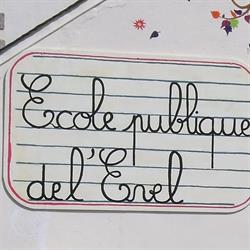 Ecole publique
de l'Erel